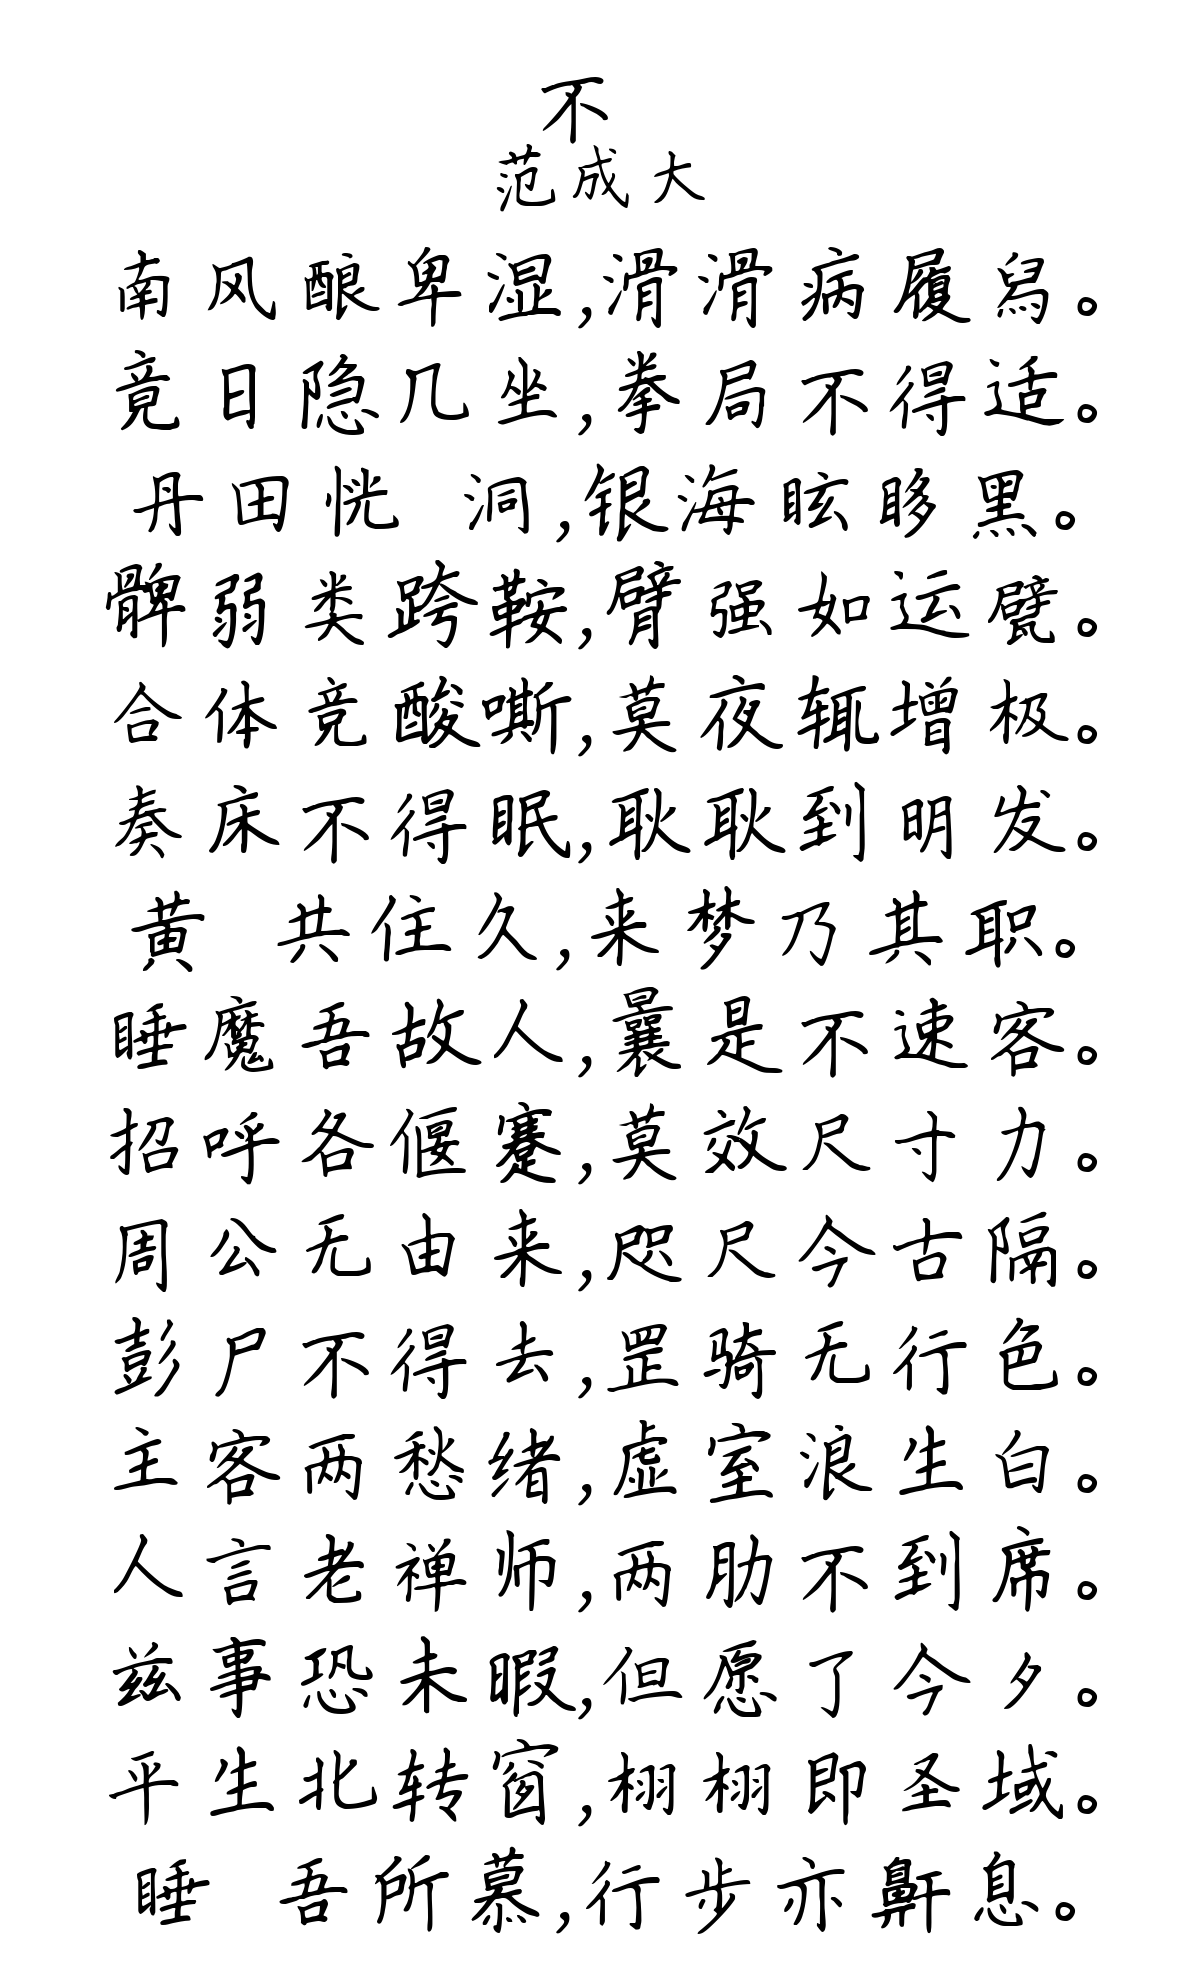 不
范成大
南风酿卑湿,滑滑病履舄。
竟日隐几坐,拳局不得适。
丹田恍 洞,银海眩眵黑。
髀弱类跨鞍,臂强如运甓。
合体竞酸嘶,莫夜辄增极。
奏床不得眠,耿耿到明发。
黄 共住久,来梦乃其职。
睡魔吾故人,曩是不速客。
招呼各偃蹇,莫效尺寸力。
周公无由来,咫尺今古隔。
彭尸不得去,罡骑无行色。
主客两愁绪,虚室浪生白。
人言老禅师,两肋不到席。
兹事恐未暇,但愿了今夕。
平生北转窗,栩栩即圣域。
睡 吾所慕,行步亦鼾息。